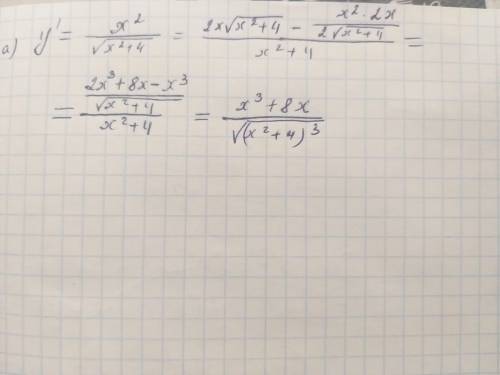 а) y' = x²/√(x²+4) = (2x√(x²+4) − (x²·2x)/(2√(x²+4)))/(x²+4) =
= ((2x³+8x−x³)/√(x²+4))/(x²+4) = (x³+8x)/√((x²+4)³)